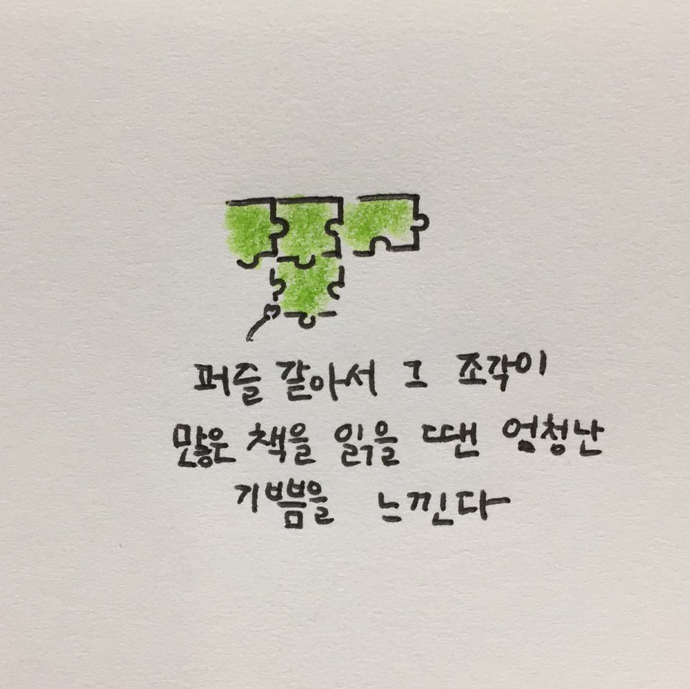 퍼즐 같아서 그 조각이
많은 책을 읽을 땐 엄청난
기쁨을 느낀다